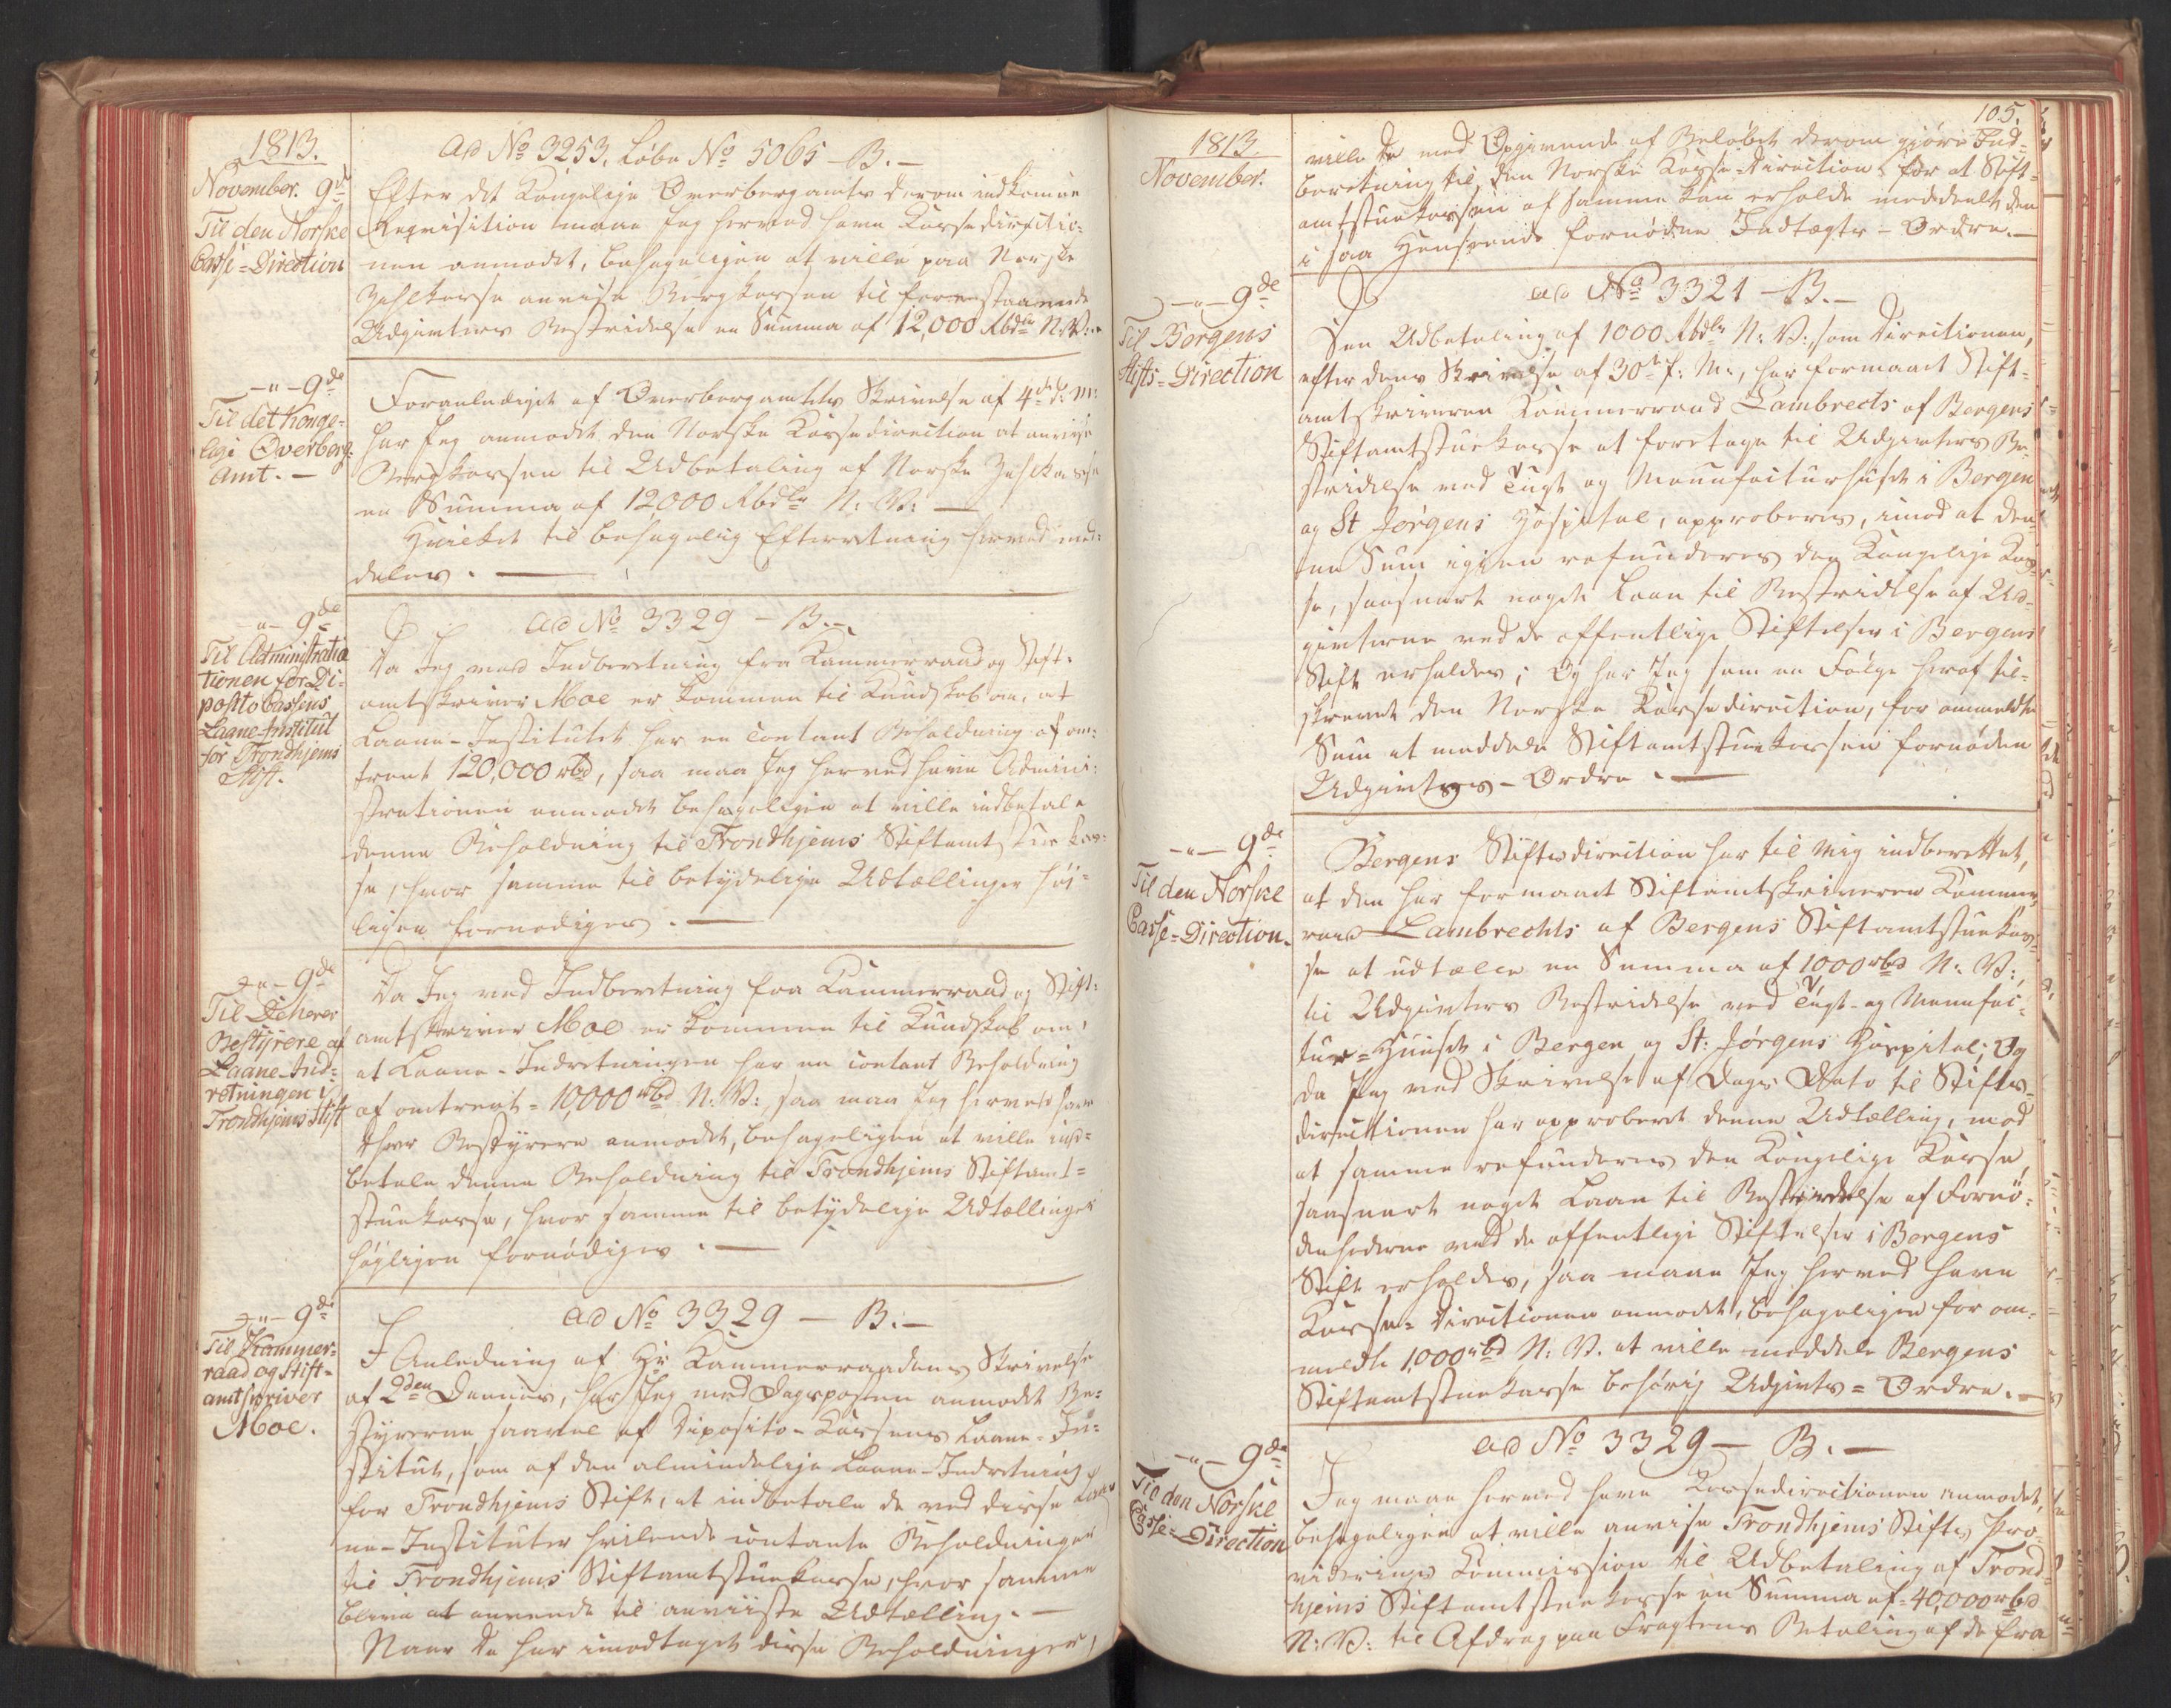 1813.
November. 9de
Til den Norske
Casse-Direction
Ad No 3253. Løbe No 5065 - B. -
Efter det Kongelige Overbergamts derom indkomne
Requisition maae Jeg herved have Kassedirectio-
nen anmodet, behageligen at ville paa Norske
Zahlkasse anvise Bergkassen til forenstaaende
Udgivters Bestridelse en Summa af 12,000 Rbdlr N: V:
-"- 9de
Til det Konge-
lige Overberg-
amt. -
Foranlediget af Overbergamtets Skrivelse af 4de d: M:
har Jeg anmodet den Norske Kassedirection at anvise
Bergkassen til Udbetaling af Norske Zahlkasse
en Summa af 12000 Rbdlr N: V: -
Hvilket til behagelig Efterretning herved med-
deles. -
-"- 9de
Til Administra
tionen for De-
posito Cassens
Laane-Institut
for Trondhjems
Stift.
ad No 3329 - B. -
Da Jeg ved Indberetning fra Kammerraad og Stift-
amtskriver Moe er kommen til Kundskab om, at
Laane-Institutet har en contant Beholdning af om-
trent 120,000 rbd, saa maa Jeg herved have Admini-
strationen anmodet behageligen at ville indbetale
denne Beholdning til Trondhjems Stiftamtstuekas-
se, hvor samme til betydelige Udtællinger høi-
ligen fornødiges. -
-"- 9de
Til Dehrer
Bestyrere af
Laane-Ind-
retningen i
Trondhjems Stift
Da Jeg ved Indberetning fra Kammerraad og Stift-
amtskriver Moe er kommen til Kundskab om,
at Laane-Indretningen har en contant Beholdning
af omtrent = 10,000 rbd N: V:, saa maa Jeg herved have
Dhrr Bestyrere anmodet, behageligen at ville ind-
betale denne Beholdning til Trondhjems Stiftamt-
stuekasse, hvor samme til betydelige Udtællinger
høyligen fornødiges. -
-"- 9de
Til Kammer-
raad og Stift-
amtskriver
Moe.
ad No 3329 - B. -
I Anledning af Hr Kammerraadens Skrivelse
af 2den Dennes, har Jeg med Dagsposten anmodet Be-
styrerne saavel af Deposito-Kassens Laane-In-
stitut, som af den almindelige Laane-Indretning
for Trondhjems Stift, at indbetale de ved disse Laa-
ne-Instituter hvilende contante Beholdninger
til Trondhjems Stiftamtstuekasse, hvor samme
blive at anvende til anviiste Udtælling. -
Naar De har imodtaget disse Beholdninger,
105.
1813.
November.
ville De med Opgivende af Beløbet derom gjøre Ind-
beretning til den Norske Kasse-Direction for at Stift-
amtstuekassen af samme kan erholde meddeelt den
i saa Henseende fornødne Indtægts-Ordre. -
-"- 9de
Til Bergens
Stifts-Direction
ad No 3321 - B. -
Den Udbetaling af 1000 Rbdlr N: V:, som Directionen,
efter dens Skrivelse af 30te f: M:, har formaaet Stift-
amtskriveren Kammerraad Lambrects af Bergens
Stiftamtstuekasse at foretage til Udgivters Be-
stridelse ved Tugt og Manufacturhuset i Bergen
og St Jørgens Hospital, approberes, imod at den-
ne Sum igien refunderes den Kongelige Kas-
se, saasnart noget Laan til Bestridelse af Ud-
givterne ved de offentlige Stiftelser i Bergens
Stift erholdes; Og har Jeg som en Følge heraf til-
skrevet den Norske Kassedirection, for anmeldte
Sum at meddele Stiftamtstuekassen fornøden
Udgivts-Ordre. -
-"- 9de
Til den Norske
Casse-Direction.
Bergens Stiftsdirection har til mig indberettet,
at den har formaaet Stiftamtskriveren Kammer-
raad Lambrechts af Bergens Stiftamtstuekas-
se at udtælle en Summa af 1000 rbd N: V:,
til Udgivters Bestridelse ved Tugt- og Manufac-
tur-Huuset i Bergen og St: Jørgens Hospital; Og
da Jeg ved Skrivelse af Dags Dato til Stifts-
directionen har approberet denne Udtælling, mod
at samme refunderes den Kongelige Kasse,
saasnart noget Laan til Bestridelse af Fornø-
denhederne ved de offentlige Stiftelser i Bergens
Stift erholdes, saa maae Jeg herved have
Kasse-Directionen anmodet, behageligen for om-
meldte 1,000 rbd N: V. at ville meddele Bergens
Stiftamtstuekasse behørig Udgivts-Ordre. -
-"- 9de
Til den Norske
Casse-Direction
ad No 3329 - B. -
Jeg maae herved have Kassedirectionen anmodet,
behageligen at ville anvise Trondhjems Stifts Pro-
viderings Commission til Udbetaling af Trond-
hjems Stiftamtstuekasse en Summa af = 40,000 rbd
N: V: til Afdrag paa Fragtens Betaling af de fra